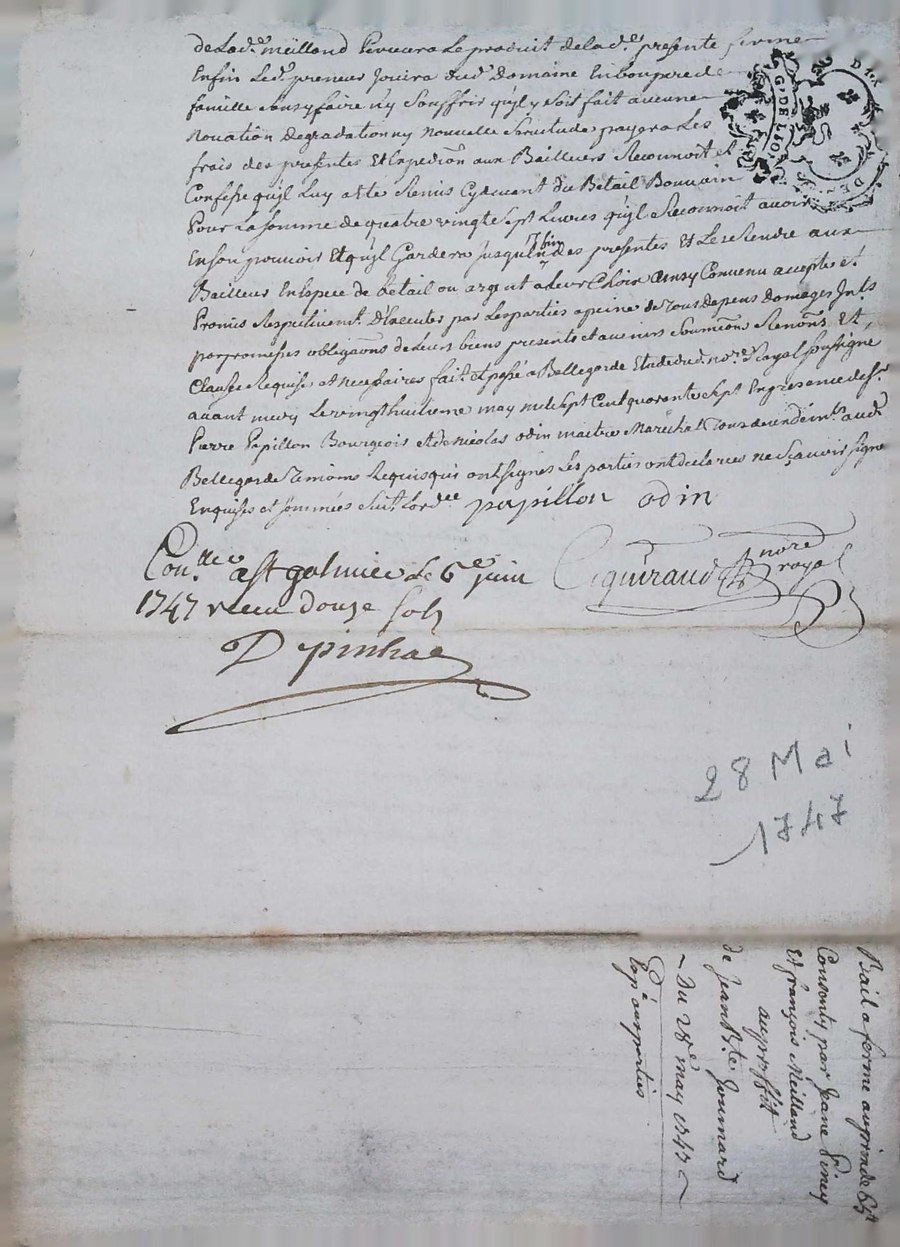 de lad.e meilland percevra le produit de lad.e presente ferme
Enfin led. preneur jouira dud. domaine En bon pere de
famille sans y faire n'y souffrir qu'il y soit fait aucune
novation degradation ny nouvelle servitude payera les
frais des presentes Et Expedion aux Bailleurs Reconnoit et
Confesse qu'jl luy a eté Remis Cy devant du Bétail Bouvain
Pour la somme de quatre vingt sept Livres qu'jl Reconnoit avoir
En son pouvoir Et qu'jl Gardera jusqu'à la fin des presentes Et Le Rendre aux
Bailleurs En Espece de bétail ou argent a Leur Choix ainsy Convenu accepté et
Promis Respectivemt. d'Executer par Les parties a peine de tous depens domages Jnt.s
par promesses obligaons de Leurs biens presents et avenirs soumions Renons Et
Clauses Requises et necessaires fait et passé a Bellegarde Etude dud. no.re Royal soussigné
avant mery Le vingt huitieme may mil sept Cent quarante sept En presence de s.r
Pierre Papillon Bourgeois et de Nicolas odin maitre Marechal tous deux demt.s aud.
Bellegarde Temoins Requis qui ont signés Les parties ont declarées ne sçavoir signer
Enquises et sommées suivt. L'ord.ce papillon odin
Con.llée a St galmier le 6e juin Ciquiraud nore royal
1747 receu douze sols
Depinhac
28 Mai
1747
Bail a ferme au prix de 65lt
Consenty par Jeane Piney
Et françois Meilland
au proffit
de Jean B.te Joannard
~ Du 28e may 1747 ~
Exp.on aux parties
G. DE LION